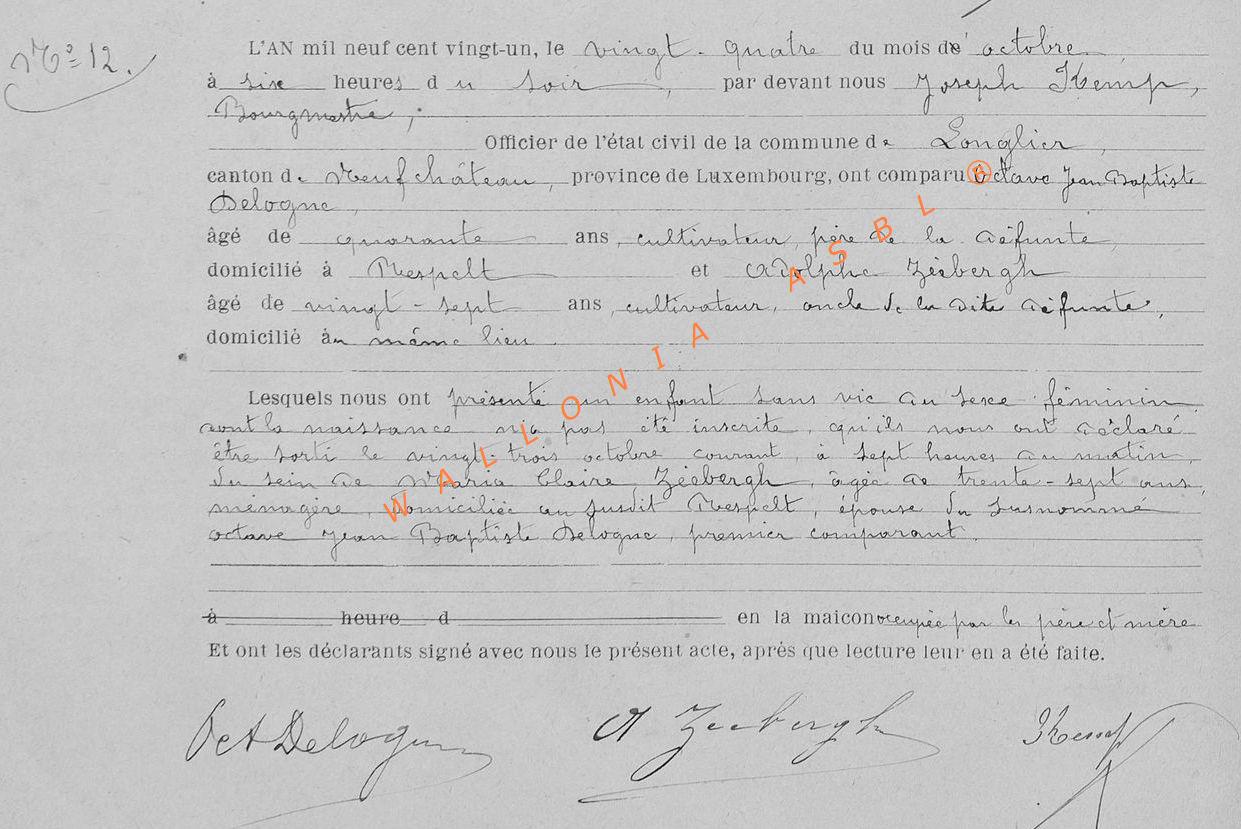 N° 12.
L'AN mil neuf cent vingt-un, le vingt-quatre du mois de octobre
à six heures du soir, par devant nous Joseph Kemp,
Bourgmestre,
Officier de l'état civil de la commune de Longlier,
canton de Neufchâteau, province de Luxembourg, ont comparu Octave Jean Baptiste
Delogne,
âgé de quarante ans, cultivateur, père de la défunte,
domicilié à Respelt et Adolphe Zéebergh
âgé de vingt-sept ans, cultivateur, oncle de la dite défunte,
domicilié au même lieu.
Lesquels nous ont présenté un enfant sans vie du sexe féminin
dont la naissance n'a pas été inscrite, qu'ils nous ont déclaré
être sorti le vingt-trois octobre courant, à sept heures du matin,
du sein de Maria Claire Zéebergh, âgée de trente-sept ans,
ménagère, domiciliée au susdit Respelt, épouse du susnommé
octave Jean Baptiste Delogne, premier comparant.
à heure d en la maicon occupée par les père et mère
Et ont les déclarants signé avec nous le présent acte, après que lecture leur en a été faite.
Oct Delogne A Zeebergh Kemp
WALLONIA ASBL ®